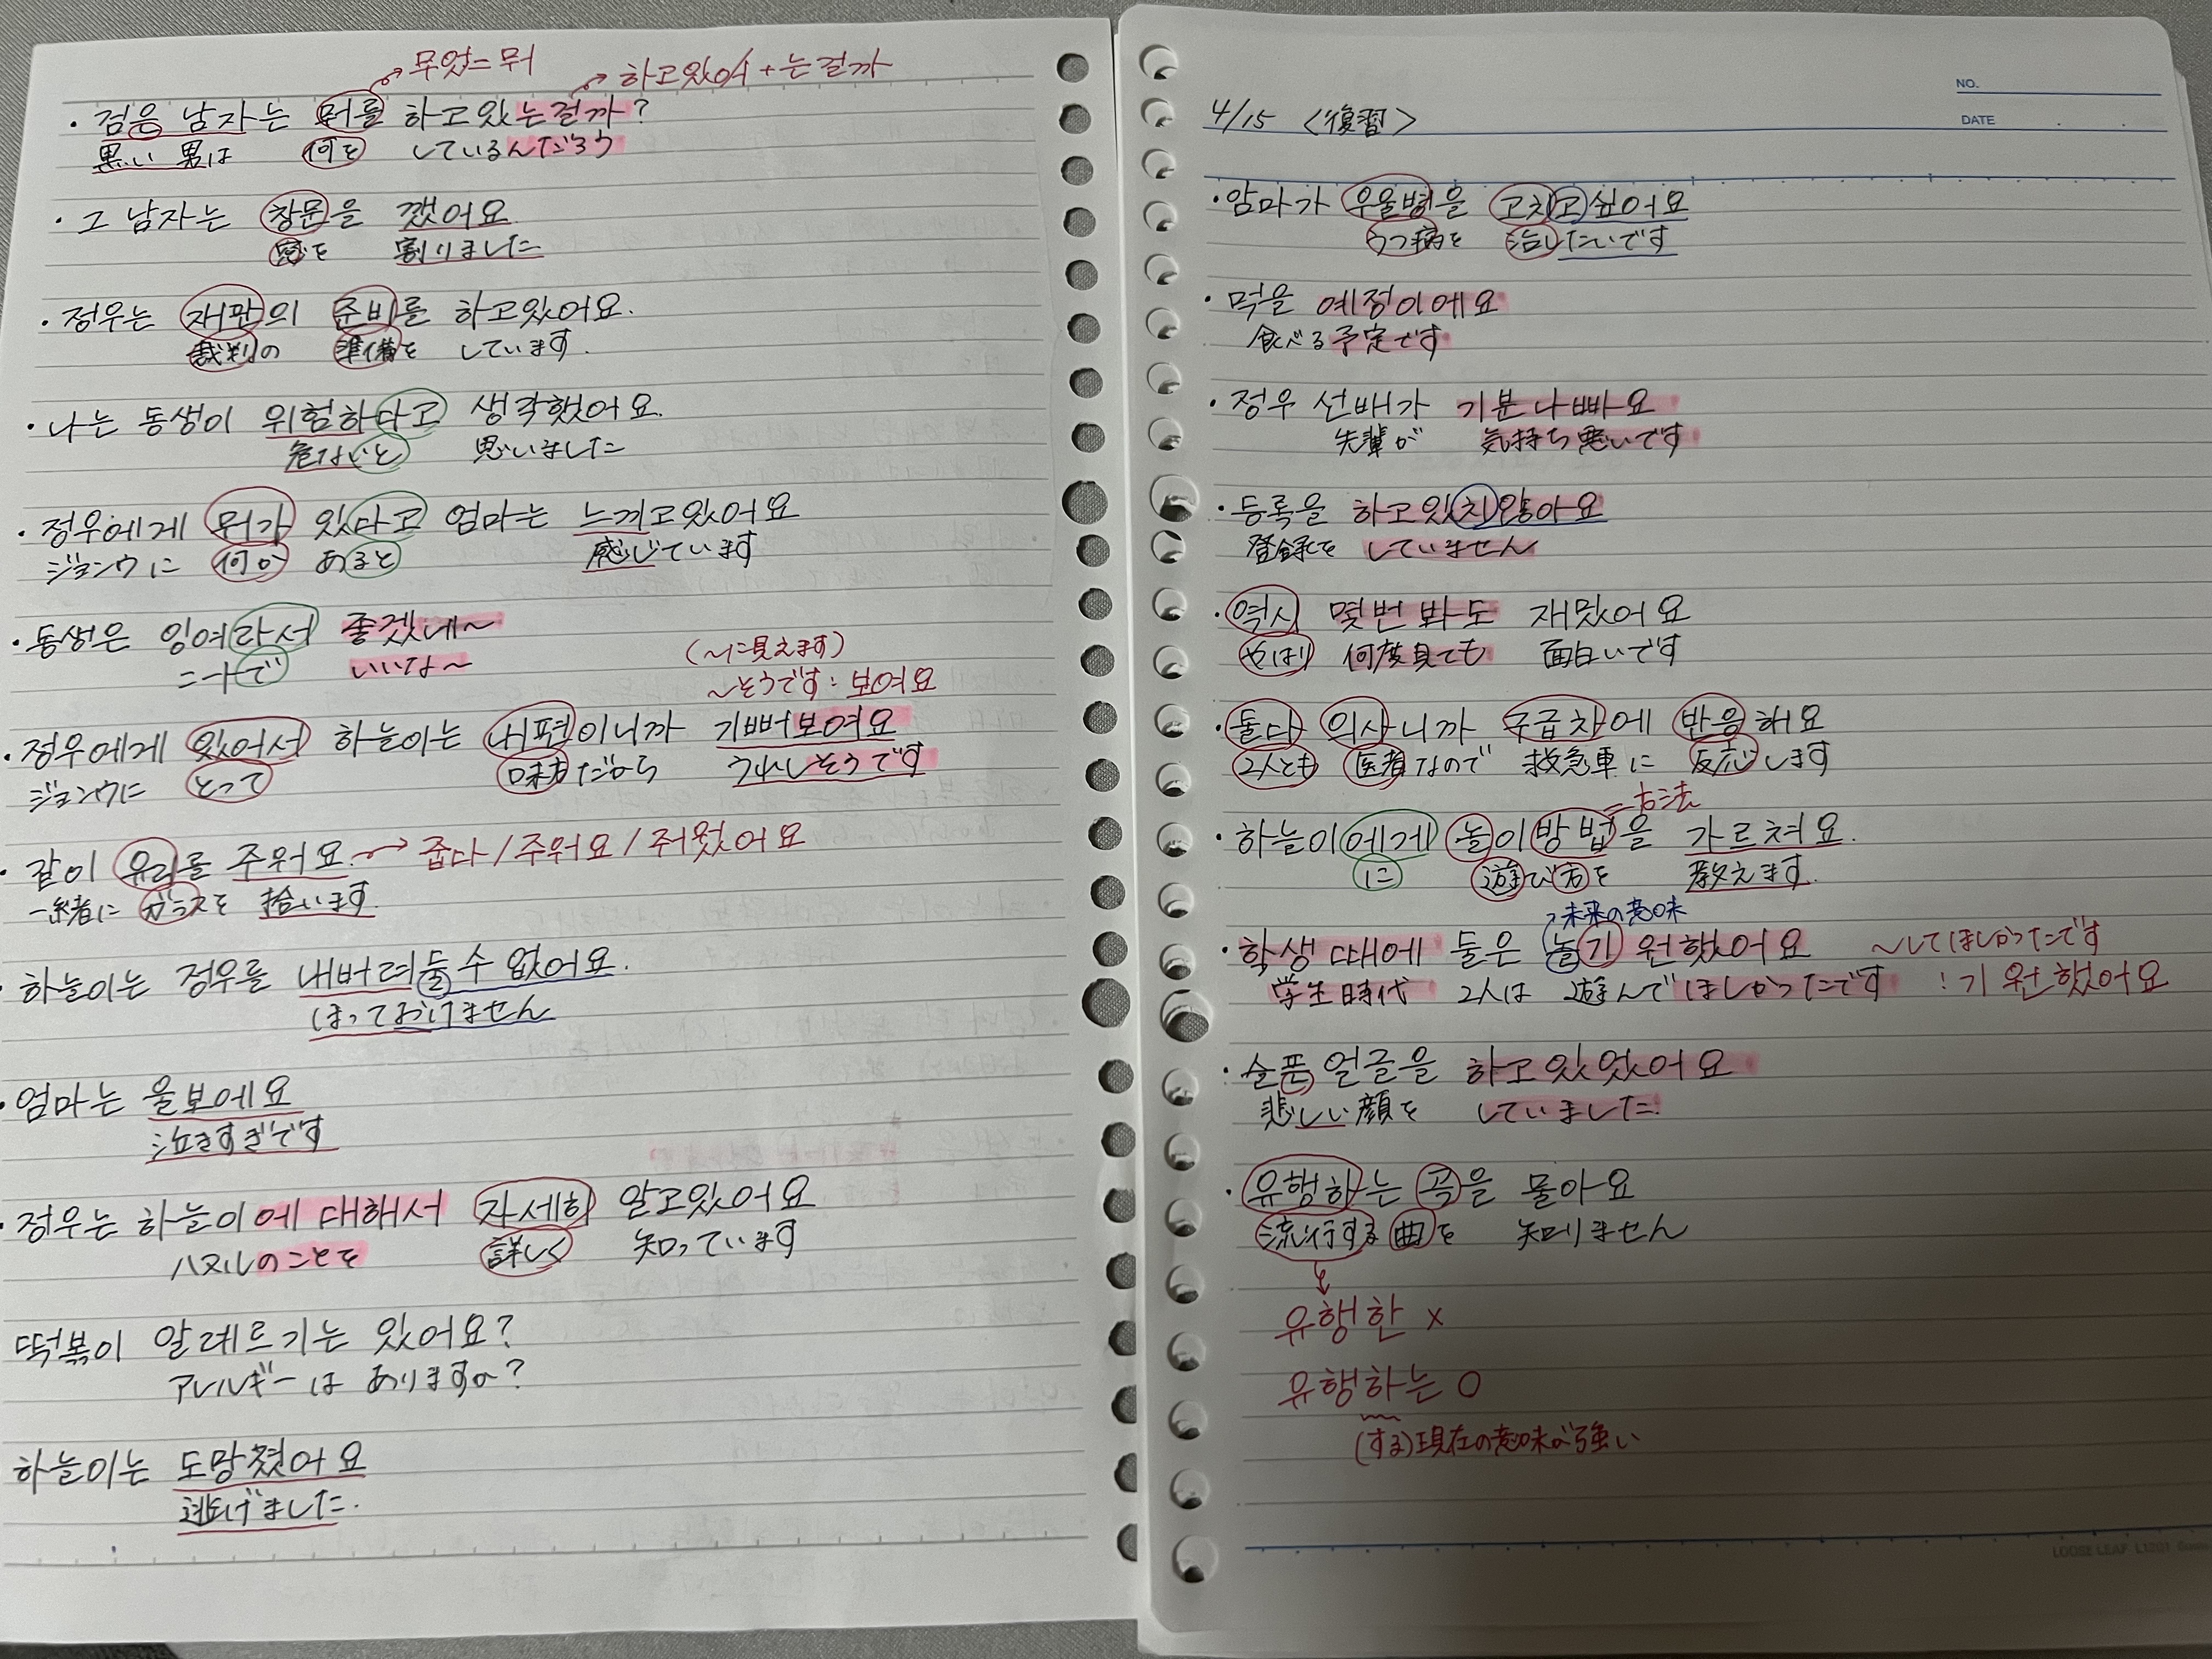 무엇=뭐
하고있어+는걸까
・검은 남자는 뭐를 하고있는걸까?
黒い 男は 何を しているんだろう
・그 남자는 창문을 깼어요
窓を 割りました
・정우는 재판의 준비를 하고있어요.
裁判の 準備を しています.
・나는 동생이 위험하다고 생각했어요.
危ないと 思いました
・정우에게 뭐가 있다고 엄마는 느끼고있어요
ジョンウに 何か あると 感じています
・동생은 잉여라서 좋겠네~
ニートで いいな~
(~に見えます)
~そうです: 보여요
・정우에게 있어서 하늘이는 내편이니까 기뻐보여요
ジョンウに とって 味方だから うれしそうです
・같이 유리를 주워요. → 줍다/주워요/주웠어요
一緒に ガラスを 拾います.
・하늘이는 정우를 내버려둘 수 없어요.
ほっておけません
・엄마는 울보에요
泣きすぎです
・정우는 하늘이에 대해서 자세히 알고있어요
ハヌルのことを 詳しく 知っています
떡볶이 알레르기는 있어요?
アレルギーは ありますか?
하늘이는 도망쳤어요
逃げました.
NO.
DATE
4/15 <復習>
・엄마가 우울병을 고치고싶어요
うつ病を 治したいです
・먹을 예정이에요
食べる予定です
・정우 선배가 기분나빠요
先輩が 気持ち悪いです
・등록을 하고있지않아요
登録を していません
・역시 몇번봐도 재밌어요
やはり 何度見ても 面白いです
・둘다 의사니까 구급차에 반응해요
2人とも 医者なので 救急車に 反応します
=方法
・하늘이에게 놀이방법을 가르쳐요.
に 遊び方を 教えます.
→未来の意味
・학생때에 둘은 놀기 원했어요 ~してほしかったです
学生時代 2人は 遊んでほしかったです :기 원했어요
・슬픈 얼굴을 하고있었어요
悲しい顔を していました.
・유행하는 곡을 몰아요
流行する 曲を 知りません
유행한 x
유행하는 O
(する)現在の意味が強い
LOOSE LEAF